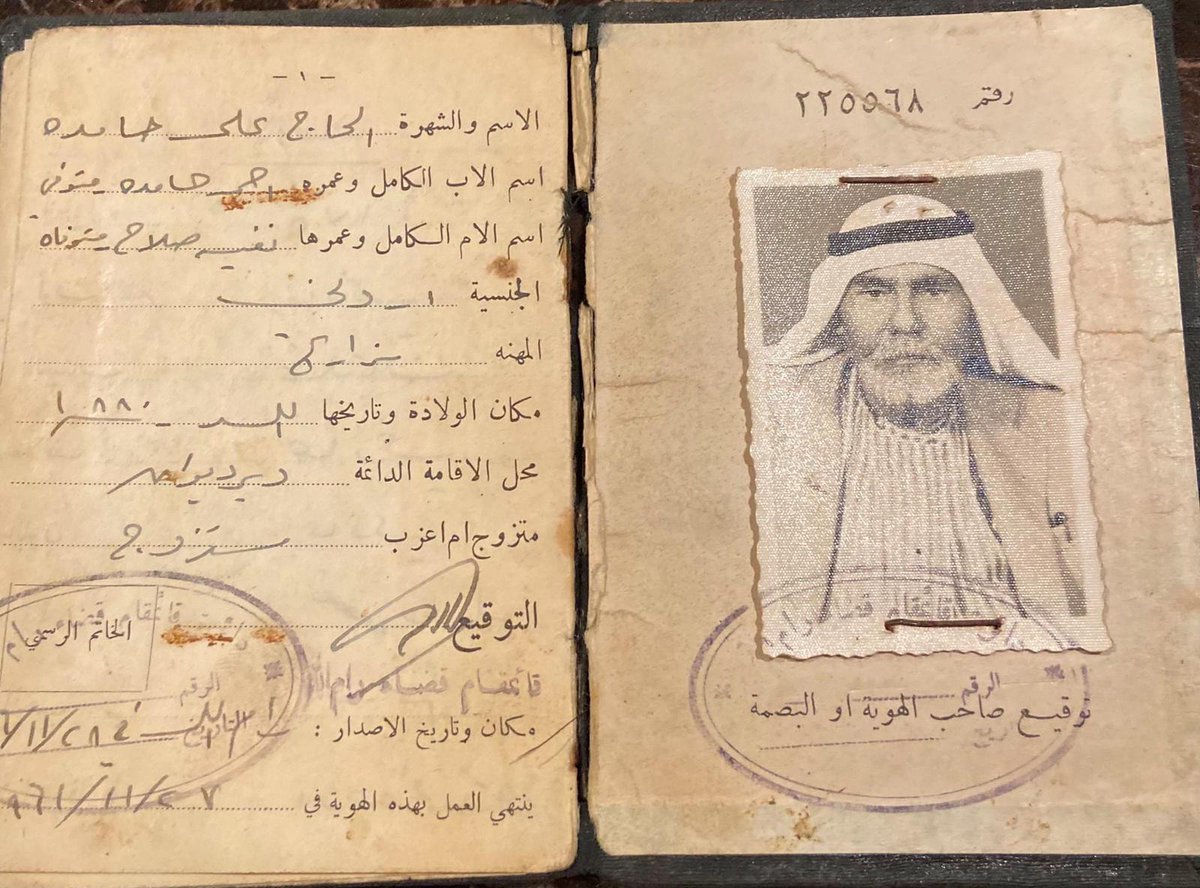 رقم ٢٢٥٥٦٨
قائمقام قضاء رام
الرقم
توقيع صاحب الهوية او البصمة
- ١ -
الاسم والشهرة الحاج علي حامده
اسم الاب الكامل وعمره حامده متوفي
اسم الام الكامل وعمرها صلاح متوفاه
الجنسية اردني
المهنه مزارع
مكان الولادة وتاريخها ١٨٨٠
محل الاقامة الدائمة ديرديوان
متزوج ام اعزب متزوج
التوقيع
الخاتم الرسمي
قائمقام قضاء رام الله
الرقم
التاريخ
مكان وتاريخ الاصدار : في ٢٨/١١/
ينتهي العمل بهذه الهوية في ٢٧/١١/٩٦١